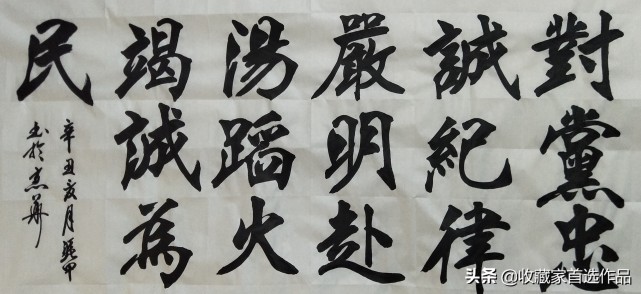 對黨忠
誠紀律
嚴明赴
湯蹈火
竭誠為
民
辛丑亥月
书於京華
头条 @收藏家首选作品